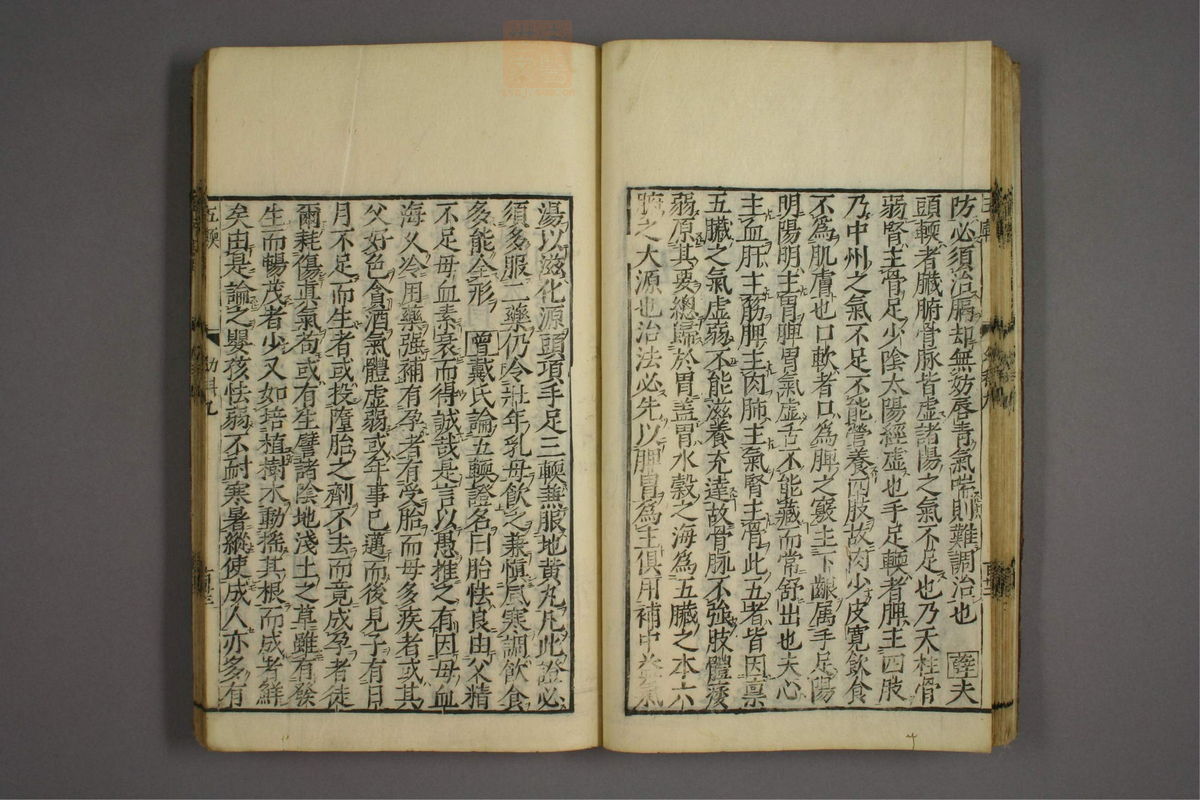 防必須治膈却無妨唇青氣喘則難調治也 薛夫
頭軟者臟腑骨脉皆虛諸陽之氣不足也乃天柱骨
弱腎主骨足少陰太陽經虛也手足軟者脾主四肢
乃中州之氣不足不能營養四肢故肉少皮寬飲食
不為肌膚也口軟者口為脾之竅主下齦属手足陽
明陽明主胃脾胃氣虛舌不能藏而常舒出也夫心
主血肝主筋脾主肉肺主氣腎主骨此五者皆因禀
五臟之氣虛弱不能滋養充達故骨脉不強肢體痿
弱原其要總歸於胃蓋胃水穀之海為五臟之本六
腑之大源也治法必先以脾胃為主俱用補中益氣
湯以滋化源頭項手足三軟兼服地黃丸凡此證必
須多服二藥仍令壯年乳母飲之兼慎風寒調飲食
多能全形 曾戴氏論五軟證名曰胎怯良由父精
不足母血素衰而得誠哉是言以愚推之有因母血
海久冷用藥强補有孕者有受胎而母多疾者或其
父好色貪酒氣體虛弱或年事已邁而後見子有日
月不足而生者或投墮胎之劑不去而竟成孕者徒
爾耗傷真氣苟或有生譬諸陰地淺土之草雖有發
生而暢茂者少又如培植樹木動搖其根而成者鮮
矣由是論之嬰孩怯弱不耐寒暑縱使成人亦多有
五軟
幼科九